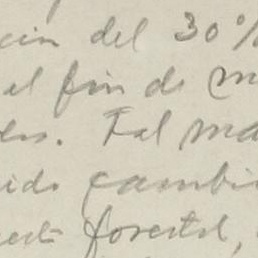 ción del 30%
el fin de m
dos. Tal ma
ido cambi
esta forestal,